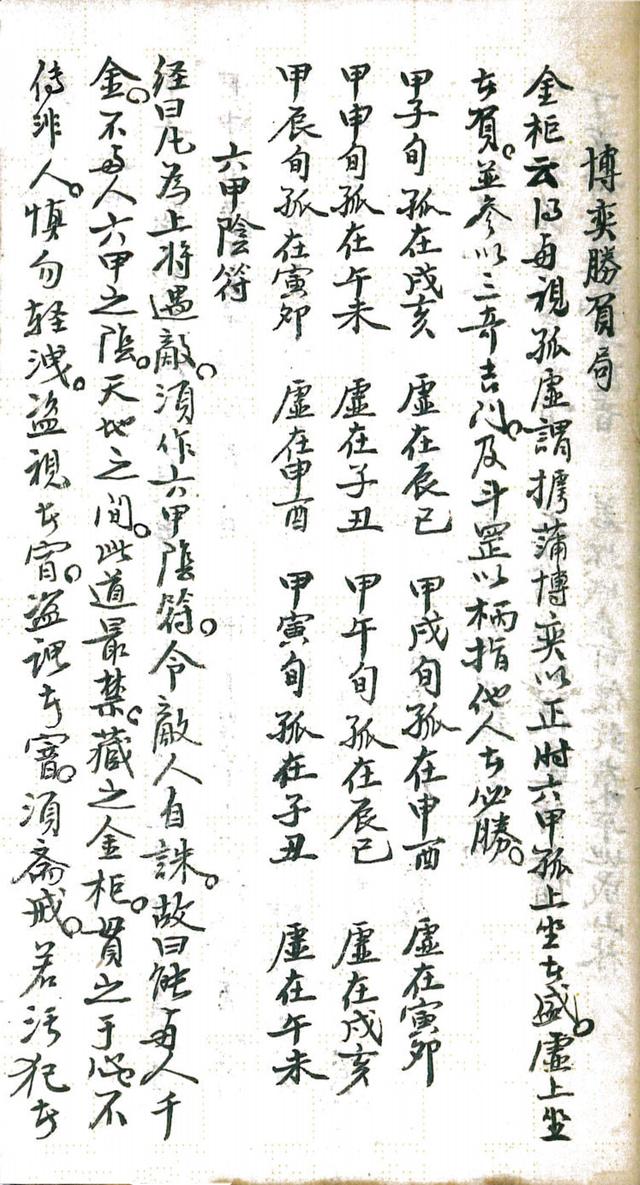 博奕勝負局
金柜云得每視孤虛謂摴蒲博奕以正时六甲孤上坐者盛。虛上坐
者負。並参以三奇吉门。及斗罡以柄指他人者必勝。
甲子旬孤在戌亥 虛在辰巳 甲戌旬孤在申酉 虛在寅卯
甲申旬孤在午未 虛在子丑 甲午旬孤在辰巳 虛在戌亥
甲辰旬孤在寅卯 虛在申酉 甲寅旬孤在子丑 虛在午未
六甲陰符
经曰凡為上将遇敵。須作六甲陰符。令敵人自誅。故曰能与人千
金。不与人六甲之陰。天地之间。此道最禁。藏之金柜。貫之于心不
传非人。慎勿轻洩。盗視者盲。盗讀者瘖。須斋戒。若污犯者